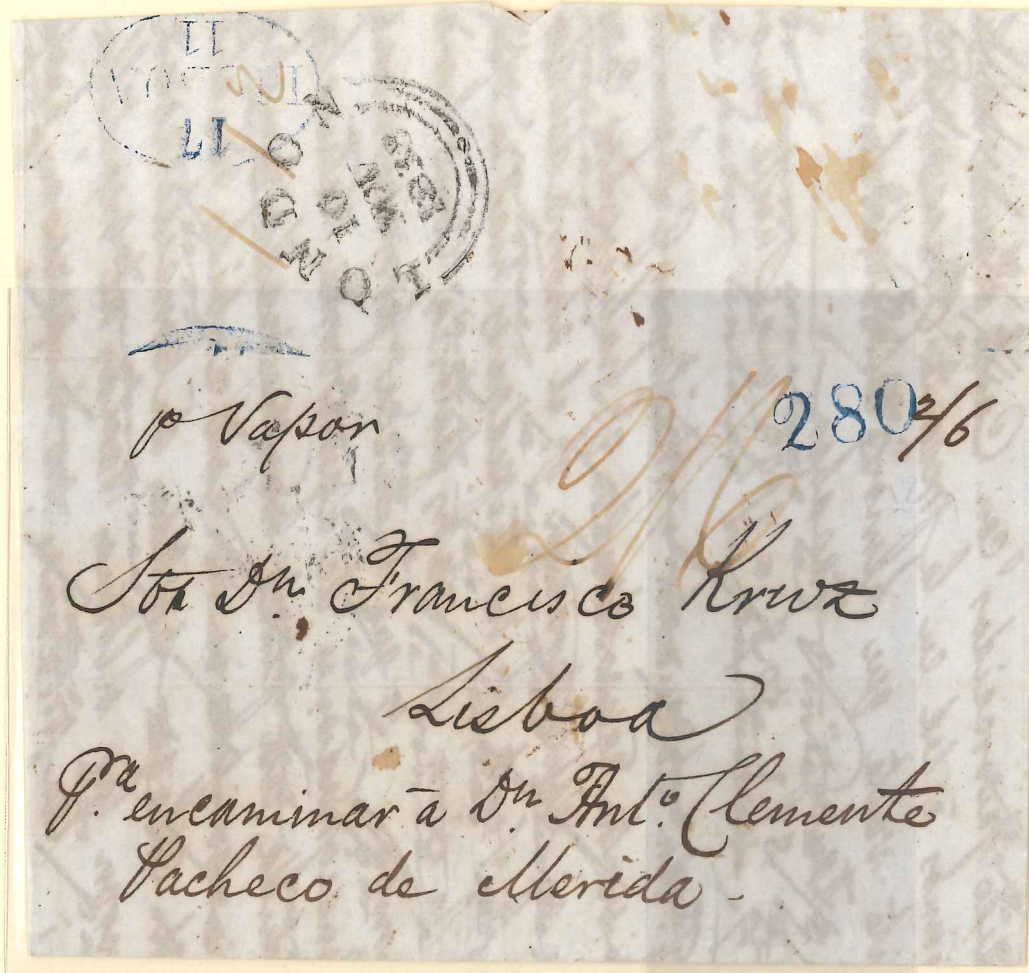 11
17
LONDON
10
NOV
p Vapor
280 2/6
2/6
Sor Dn Francisco Kruz
Lisboa
P.ra encaminar à Dn Anto. Clemente
Pacheco de Merida -